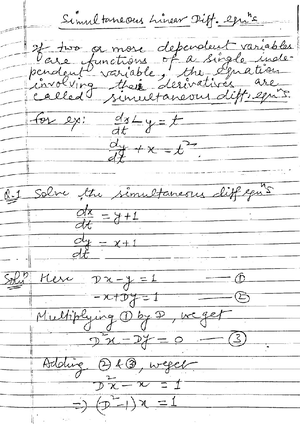 Simultaneous Linear Diff. eqnˢ
If two or more dependent variables
are functions of a single inde-
pendent variable, the equation
involving their derivatives are
called simultaneous diff. eqnˢ.
for ex: dx/dt - y = t
dy/dt + x = t²
Q.1 Solve the simultaneous diff eqnˢ
dx/dt = y+1
dy/dt = x+1
Solnⁿ Here Dx - y = 1 — ①
-x + Dy = 1 — ②
Multiplying ① by D, we get
D²x - Dy = 0 — ③
Adding ② & ③, we get
D²x - x = 1
⇒ (D²-1)x = 1